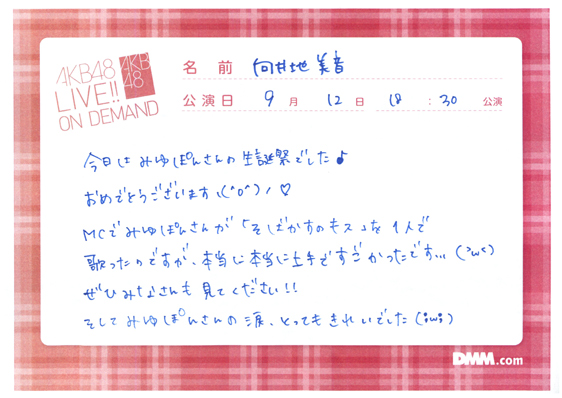 AKB48
LIVE!!
ON DEMAND
AKB
48
名 前 向井地 美音
公演日 9 月 12 日 18 : 30 公演
今日は みゆぽんさんの 生誕祭でした♪
おめでとうございます、(^o^)ノ♡
MCでみゆぽんさんが「そばかすのキス」を 1人で
歌ったのですが、本当に本当に上手ですごかったです... (>ω<)
ぜひみなさんも見てください!!
そしてみゆぽんさんの涙、とってもきれいでした (;ω;)
DMM.com